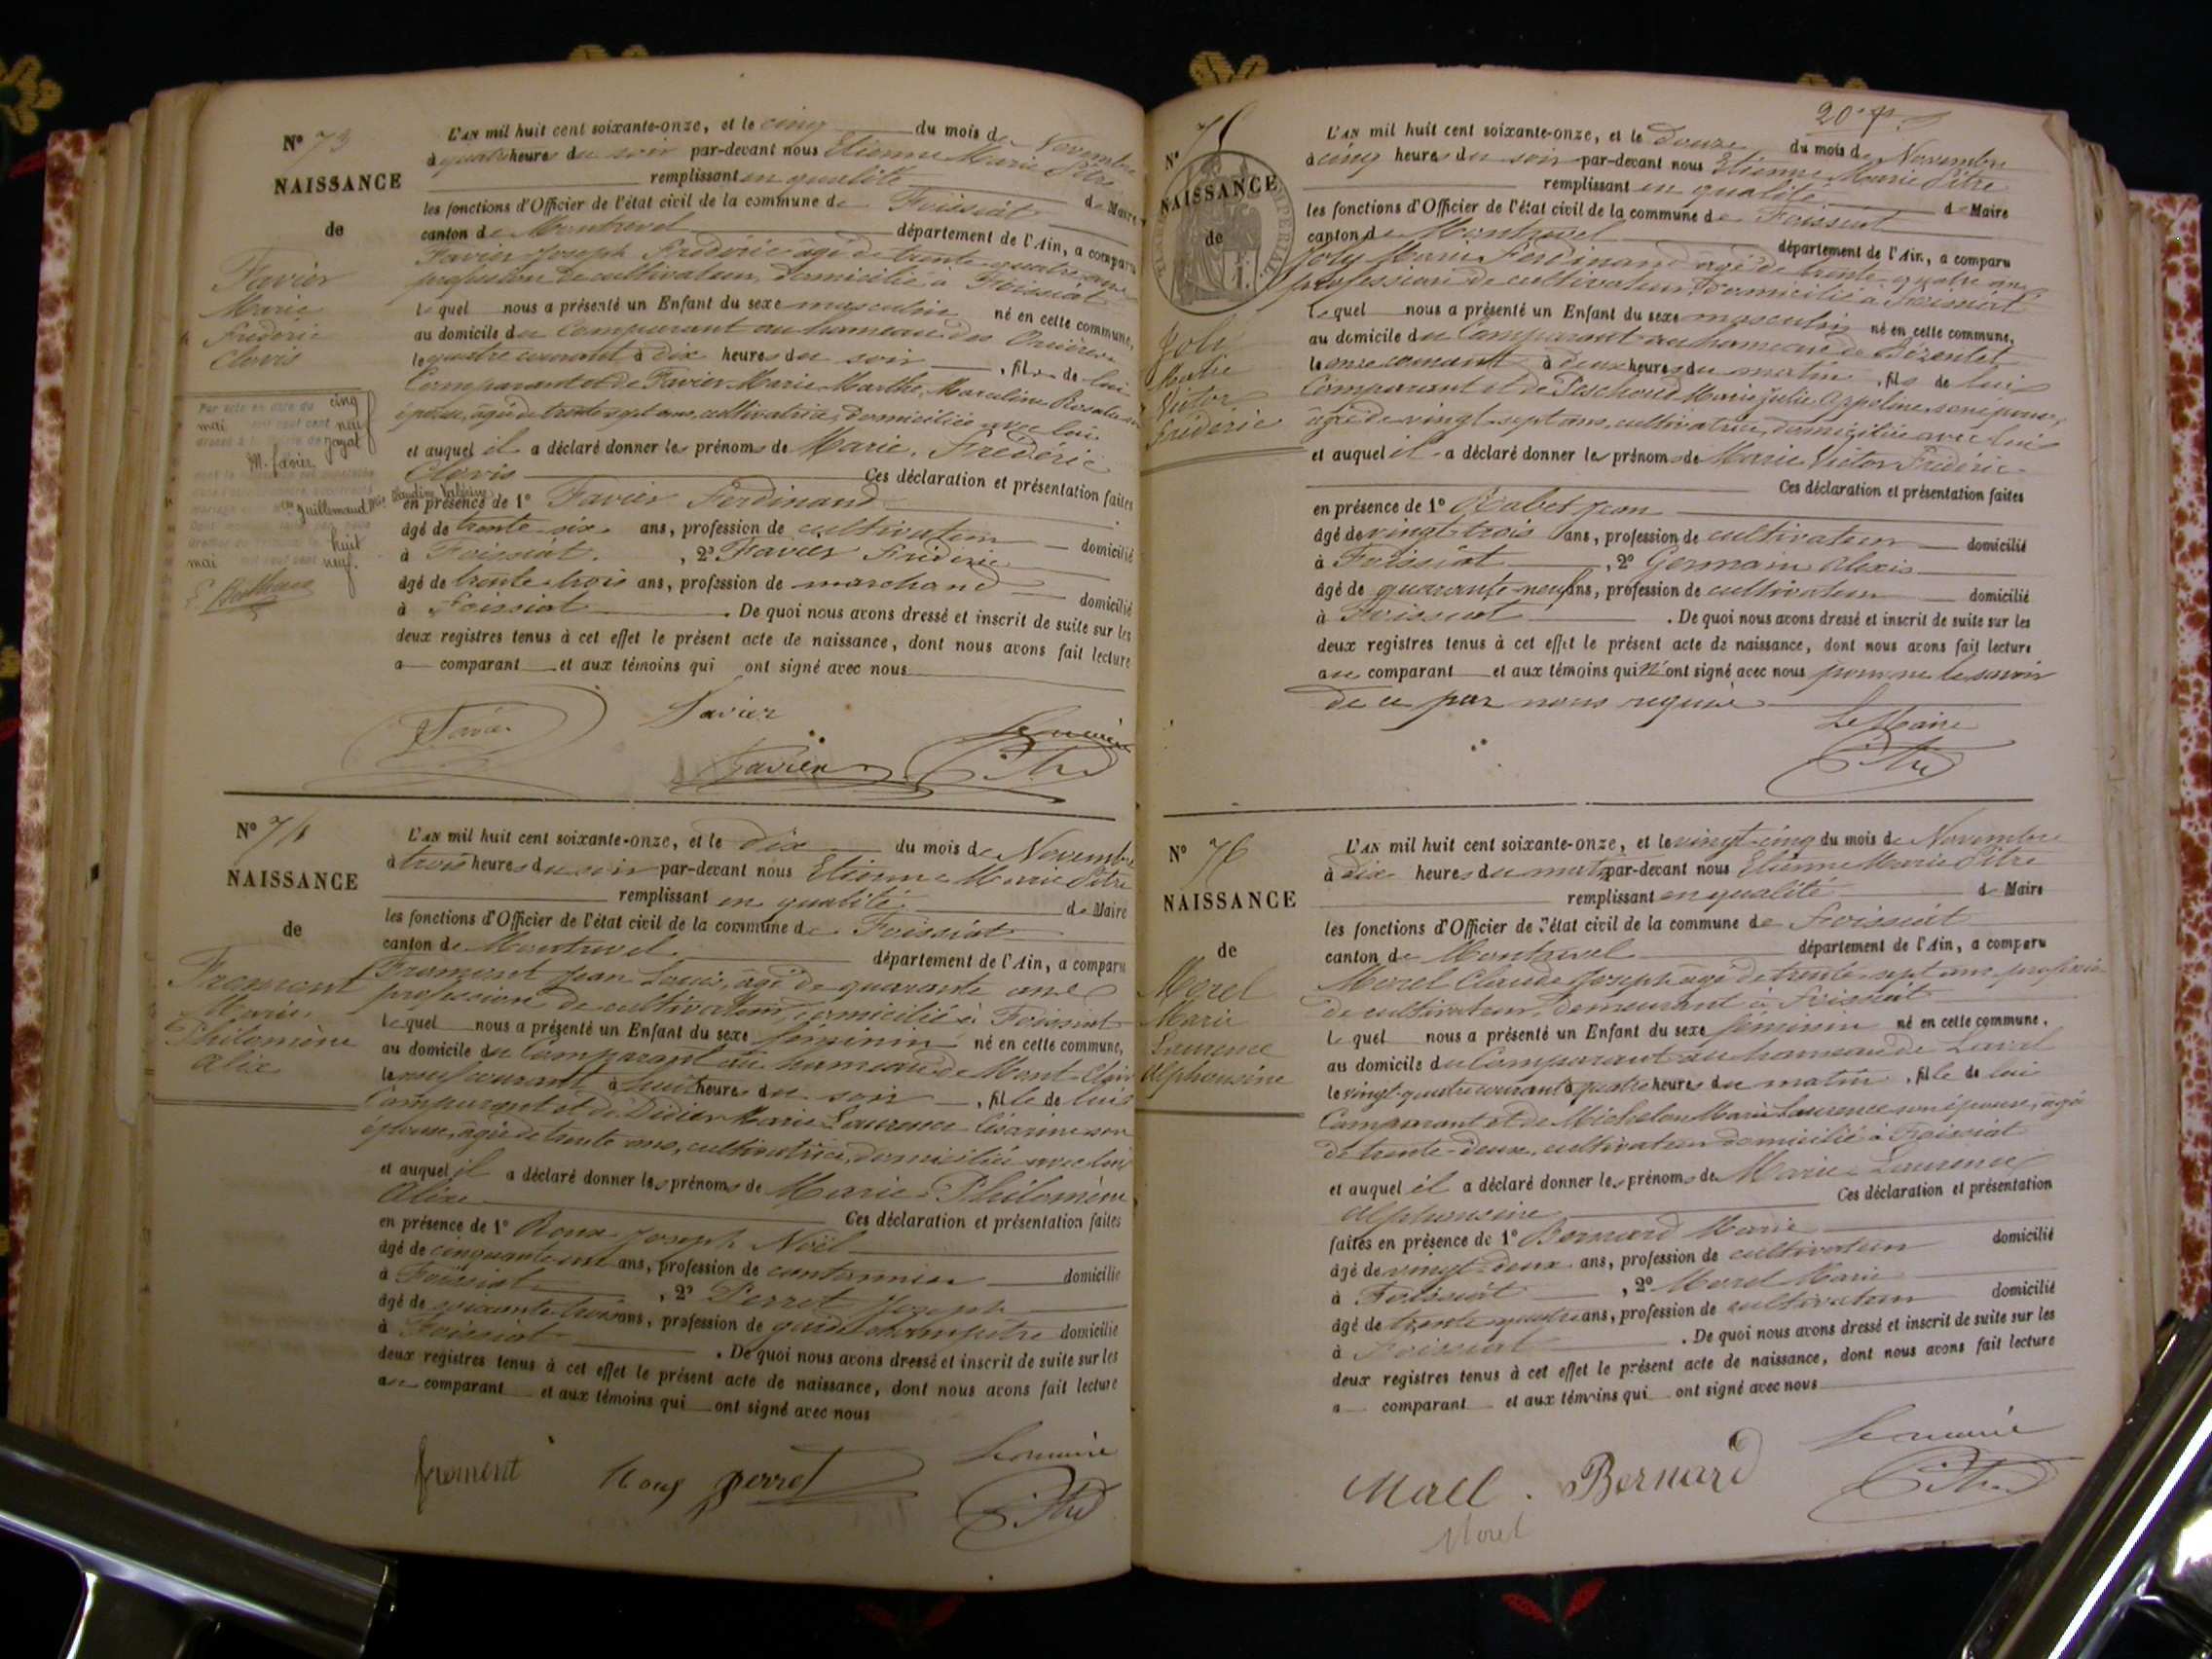 N° 73
NAISSANCE
de
Favier
Marie
Fréderic
Clovis
L'AN mil huit cent soixante-onze, et le cinq du mois de Novembre
à quatre heures du soir par-devant nous Etienne Marie Pitre
remplissant en qualité de Maire
les fonctions d'Officier de l'état civil de la commune de Foissiat
canton de Montrevel département de l'Ain, a comparu
Favier Joseph Fréderic âgé de trente quatre ans
profession de cultivateur, domicilié à Foissiat
lequel nous a présenté un Enfant du sexe masculin né en cette commune,
au domicile du Comparant au hameau des
le quatre courant à dix heures du soir, fils de lui
Comparant et de Favier Marie Marthe Marceline son
épouse, âgée de trente sept ans, cultivatrice, domiciliée avec lui
et auquel il a déclaré donner les prénoms de Marie, Fréderic
Clovis Ces déclaration et présentation faites
en présence de 1° Favier Ferdinand
âgé de trente six ans, profession de cultivateur domicilié
à Foissiat, 2° Favier Fréderic
âgé de trente trois ans, profession de marchand domicilié
à Foissiat. De quoi nous avons dressé et inscrit de suite sur les
deux registres tenus à cet effet le présent acte de naissance, dont nous avons fait lecture
a comparant et aux témoins qui ont signé avec nous
Favier Favier Le maire
Favier Pitre
Par acte en date du cinq
mai neuf
Jayat
M. Favier
Guillemaud
huit
mai neuf.
N° 74
NAISSANCE
de
Froment
Marie
Philomène
Alix
L'AN mil huit cent soixante-onze, et le dix du mois de Novembre
à trois heures du soir par-devant nous Etienne Marie Pitre
remplissant en qualité de Maire
les fonctions d'Officier de l'état civil de la commune de Foissiat
canton de Montrevel département de l'Ain, a comparu
Froment Jean Louis, âgé de quarante ans
profession de cultivateur, domicilié à Foissiat
lequel nous a présenté un Enfant du sexe féminin né en cette commune,
au domicile du Comparant au hameau de Mont-Clair
le neuf courant à huit heures du soir, fille de lui
Comparant et de Didier Marie Laurence Césarine son
épouse, âgée de trente ans, cultivatrice, domiciliée avec lui
et auquel il a déclaré donner les prénoms de Marie Philomène
Alixe Ces déclaration et présentation faites
en présence de 1° Roux Joseph Noël
âgé de cinquante ans, profession de cantonnier domicilié
à Foissiat, 2° Perret Joseph
âgé de soixante trois ans, profession de garde champêtre domicilié
à Foissiat. De quoi nous avons dressé et inscrit de suite sur les
deux registres tenus à cet effet le présent acte de naissance, dont nous avons fait lecture
au comparant et aux témoins qui ont signé avec nous
froment Roux perret Le maire
Pitre
20e
N° 75
NAISSANCE
de
Joly
Marie
Victor
Fréderic
L'AN mil huit cent soixante-onze, et le Douze du mois de Novembre
à cinq heures du soir par-devant nous Etienne Marie Pitre
remplissant en qualité de Maire
les fonctions d'Officier de l'état civil de la commune de Foissiat
canton de Montrevel département de l'Ain, a comparu
Joly Marie Ferdinand âgé de trente quatre ans
profession de cultivateur, domicilié à Foissiat
lequel nous a présenté un Enfant du sexe masculin né en cette commune,
au domicile du Comparant au hameau de Bézentet
le onze courant à deux heures du matin, fils de lui
Comparant et de Peschoud Marie Julie Appoline son épouse,
âgée de vingt sept ans, cultivatrice, domiciliée avec lui
et auquel il a déclaré donner les prénoms de Marie Victor Fréderic
Ces déclaration et présentation faites
en présence de 1° Rabet Jean
âgé de vingt-trois ans, profession de cultivateur domicilié
à Foissiat, 2° Germain Alexis
âgé de quarante-neuf ans, profession de cultivateur domicilié
à Foissiat. De quoi nous avons dressé et inscrit de suite sur les
deux registres tenus à cet effet le présent acte de naissance, dont nous avons fait lecture
au comparant et aux témoins qui n'ont signé avec nous pour ne le savoir
de ce par nous requis
Le Maire
Pitre
N° 76
NAISSANCE
de
Morel
Marie
Laurence
Alphonsine
L'AN mil huit cent soixante-onze, et le vingt-cinq du mois de Novembre
à dix heures du matin par-devant nous Etienne Marie Pitre
remplissant en qualité de Maire
les fonctions d'Officier de l'état civil de la commune de Foissiat
canton de Montrevel département de l'Ain, a comparu
Morel Claude Joseph âgé de trente sept ans profession
de cultivateur, demeurant à Foissiat
lequel nous a présenté un Enfant du sexe féminin né en cette commune,
au domicile du Comparant au hameau de Laval
le vingt-quatre courant à quatre heures du matin, fille de lui
Comparant et de Michelon Marie Laurence son épouse, âgée
de trente-deux, cultivateur domicilié à Foissiat
et auquel il a déclaré donner les prénoms de Marie Laurence
Alphonsine Ces déclaration et présentation
faites en présence de 1° Bernard Marie
âgé de vingt-deux ans, profession de cultivateur domicilié
à Foissiat, 2° Morel Marie
âgé de trente quatre ans, profession de cultivateur domicilié
à Foissiat. De quoi nous avons dressé et inscrit de suite sur les
deux registres tenus à cet effet le présent acte de naissance, dont nous avons fait lecture
a comparant et aux témoins qui ont signé avec nous
Le maire
Morel Bernard Pitre
Morel